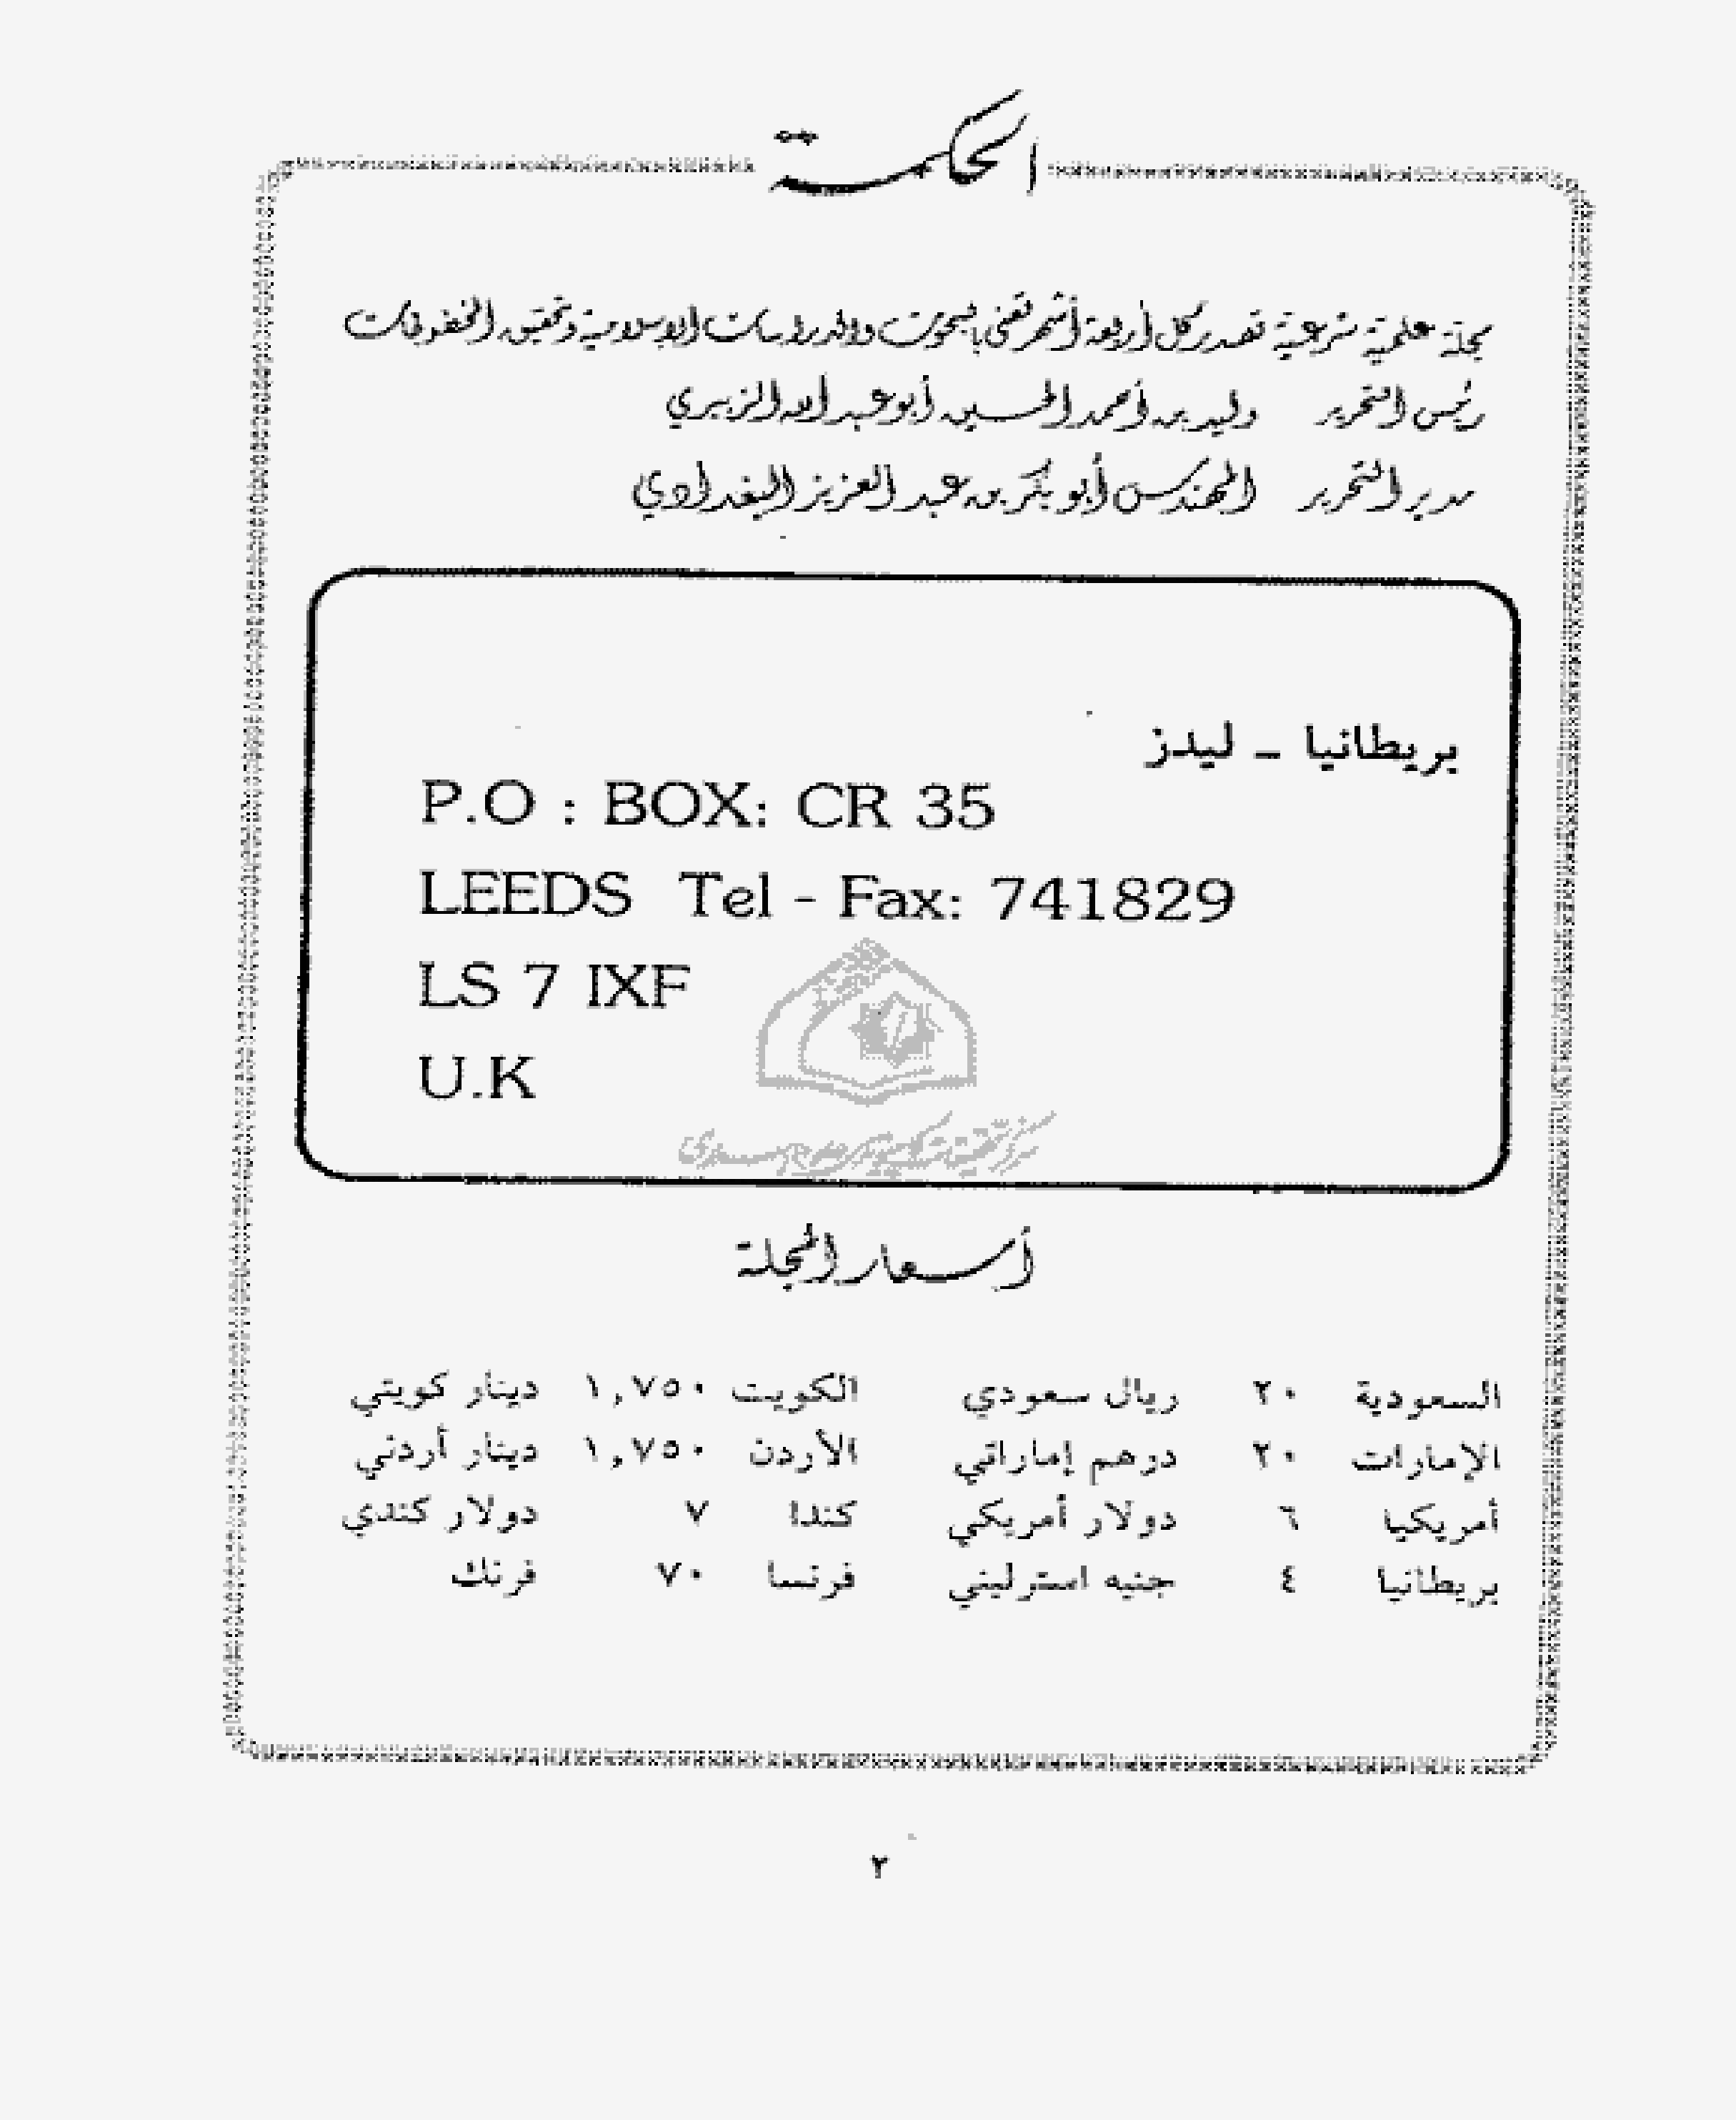 الحكمة
مجلة علمية شرعية تصدر كل أربعة أشهر تعنى بالبحوث والدراسات الإسلامية وتحقيق المخطوطات
رئيس التحرير وليد بن أحمد الحسين أبو عبد الله الزبيري
مدير التحرير المهندس أبو بكر بن عبد العزيز البغدادي
بريطانيا - ليدز
P.O : BOX: CR 35
LEEDS Tel - Fax: 741829
LS 7 IXF
U.K
مركز تحقيقات كامپيوتری علوم اسلامی
أسعار المجلة
السعودية ٢٠ ريال سعودي الكويت ١,٧٥٠ دينار كويتي
الإمارات ٢٠ درهم إماراتي الأردن ١,٧٥٠ دينار أردني
أمريكيا ٦ دولار أمريكي كندا ٧ دولار كندي
بريطانيا ٤ جنيه استرليني فرنسا ٧٠ فرنك
٢